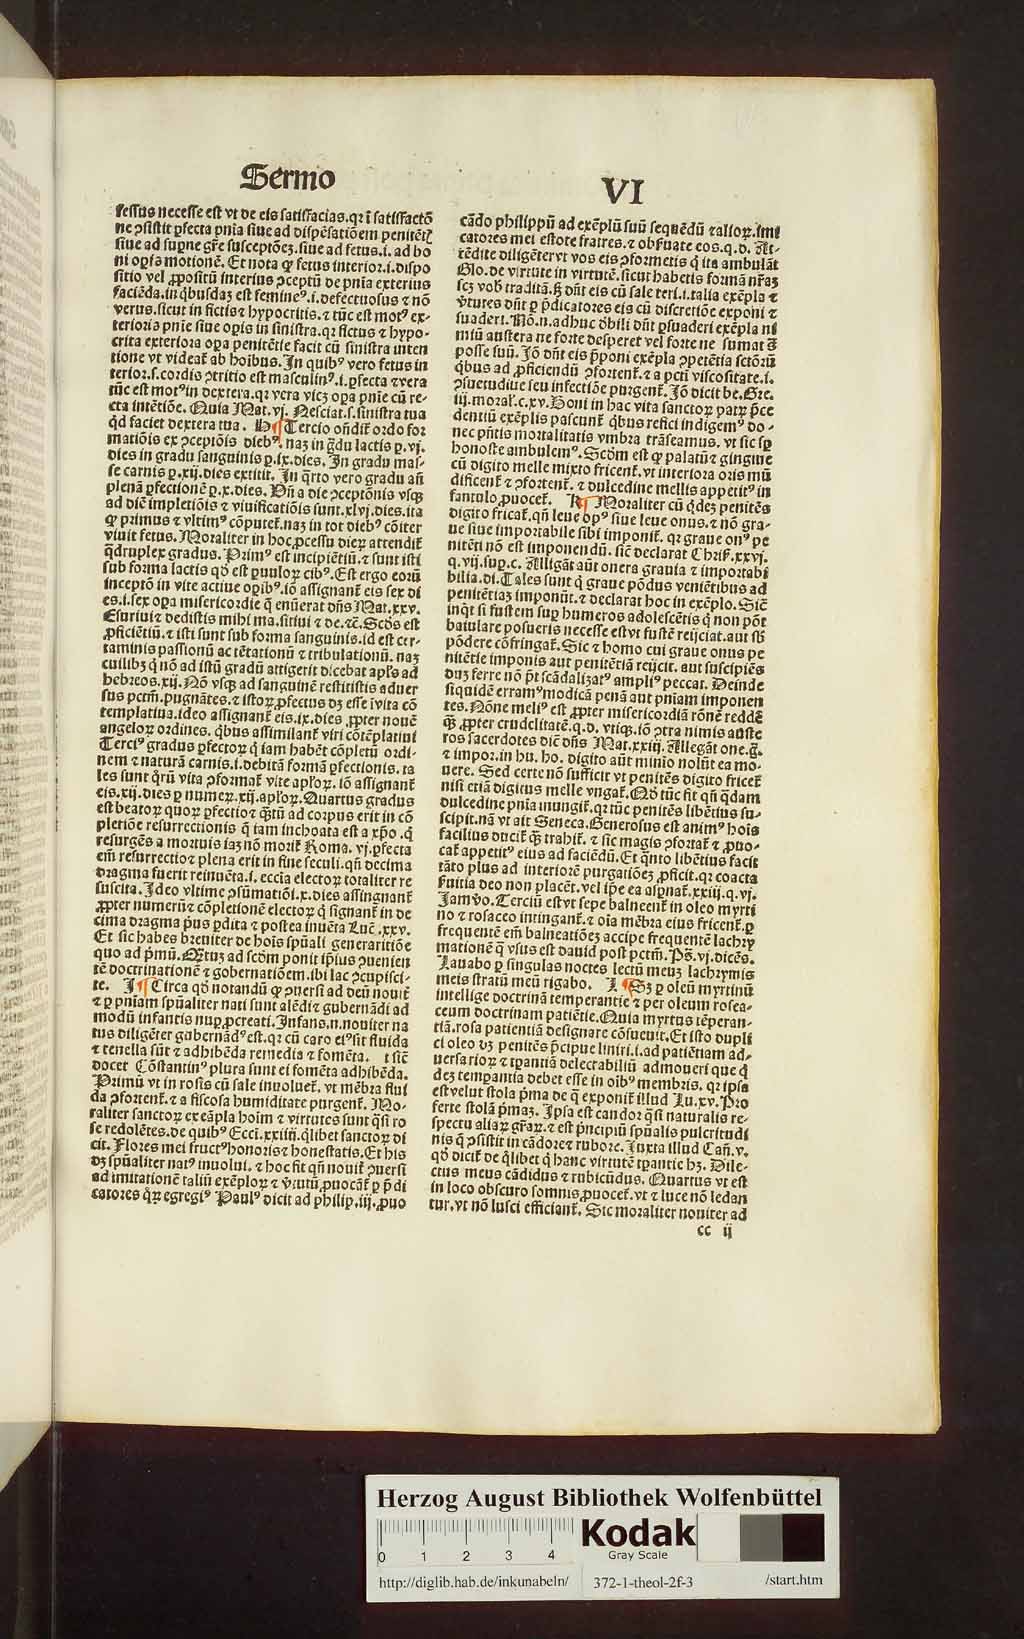 Sermo
VI
fessus necesse est vt de eis satisfacias.qr ĩ satisfactõ
ne ꝯsistit ꝑfecta pñia siue ad dispẽsatiõem penitẽtꝭ
siue ad suꝑne gr̃e susceptõeꝫ.siue ad fetus.i.ad bo
ni oꝑis motionẽ. Et nota ꝙ fetus interior.i.dispo
sitio vel ꝓpositũ interius ꝯceptũ de pñia exterius
faciẽda.in q̇busdaꝫ est femineꝰ.i.defectuosus ⁊ nõ
verus.sicut in fictis ⁊ hypocritis.⁊ tũc est motꝰ ex-
terioris pñie siue oꝑis in sinistra.qr fictus ⁊ hypo-
crita exteriora oꝑa penitẽtie facit cũ sinistra inten
tione vt videat᷑ ab hoĩbus. In quibꝰ vero fetus in
terior.s.cordis ꝯtritio est masculinꝰ.i.ꝑfecta ⁊ vera
tũc est motꝰ in dextera.qr vera viꝫ oꝑa pñie cũ re-
cta intẽtiõe. Quia Mat.vj. Nesciat.s.sinistra tua
qd faciet dextera tua. H ¶ Tercio oñdit᷑ ordo for
matiõis ex ꝯceptiõis diebꝰ.naꝫ in g̃du lactis ꝑ.vj.
dies in gradu sanguinis ꝑ.ix.dies. In gradu mas-
se carnis ꝑ.xij.dies extitit. In q̃rto vero gradu añ
plenã ꝑfectionẽ ꝑ.x.dies. Vñ a die ꝯceptõnis vsqꝫ
ad diẽ impletiõis ⁊ viuificatiõis sunt.xlvj.dies.ita
ꝙ primus ⁊ vltimꝰ cõputet᷑.naꝫ in tot diebꝰ cõiter
viuit fetus. Moraliter in hoc ꝓcessu dieꝝ attendit᷑
q̃druplex gradus. Primꝰ est incipiẽtiũ.⁊ sunt isti
sub forma lactis qð est ꝑuuloꝝ cibꝰ. Est ergo eorũ
inceptõ in vite actiue oꝑibꝰ.iõ assignant᷑ eis sex di
es.i.sex oꝑa misericordie q̃ enũerat dñs Mat.xxv.
Esuriui ⁊ dedistis mihi ma.sitiui ⁊ de.⁊c̃. Scðs est
ꝓficiẽtiũ.⁊ isti sunt sub forma sanguinis.id est cer-
taminis passionũ ac tẽtationũ ⁊ tribulationũ.naꝫ
cuilibꝫ q̇ nõ ad istũ gradũ attigerit dicebat apl̃s ad
hebreos.xij. Nõ vsqꝫ ad sanguinẽ restitistis aduer
sus pctm̃.pugnãtes.⁊ istoꝝ ꝓfectus dꝫ esse ĩ vita cõ
templatiua.ideo assignant᷑ eis.ix.dies.ꝓpter nouẽ
angeloꝝ ordines. q̇bus assimilant᷑ viri cõtẽplatiui
Terciꝰ gradus ꝑfectoꝝ q̇ iam habẽt cõpletũ ordi-
nem ⁊ naturã carnis.i.debitã formã ꝑfectionis.ta
les sunt q̃rũ vita ꝯformat᷑ vite apl̃oꝝ. iõ assignant᷑
eis.xij.dies ꝑ numeꝝ.xij.apl̃oꝝ. Quartus gradus
est beatoꝝ quoꝝ ꝑfectio ⁊ q̃tũ ad corpus erit in cõ
pletiõe resurrectionis q̃ iam inchoata est a xp̃o.q̇
resurgẽs a mortuis iaꝫ nõ morit᷑ Roma. vj.ꝑfecta
em̃ resurrectio ⁊ plena erit in fine seculi.qñ decima
dragma fuerit reinuẽta.i. eccĩa electoꝝ totaliter re
suscita. Ideo vltime ꝯsũmatiõi.x.dies assingnant᷑
ꝓpter numerũ ⁊ cõpletionẽ electoꝝ q̇ signant᷑ in de
cima dragma p̃us ꝑdita ⁊ postea inuẽta Luc̃.xxv.
Et sic habes breuiter de hoĩs sp̃uali generaritiõe
quo ad p̃mũ. Qr̃tuꝫ ad scðm ponit ip̃ius ꝯuenien
tẽ doctrinationẽ ⁊ gobernatiõem.ibi lac ꝯcupisci-
te. I ¶ Circa qð notandũ ꝙ ꝯuersi ad deũ nouit᷑
⁊ ꝑ pñiam sp̃ualiter nati sunt alẽdi ⁊ gubernãdi ad
modũ infantis nuꝑ ꝓcreati. Infans.n.nouiter na
tus diligẽter gubernãdꝰ est.qr cũ caro eiꝰ sit fluida
⁊ tenella sũt ⁊ adhibẽda remedia ⁊ fomẽta. t sic̃
docet Cõstantinꝰ plura sunt ei fomẽta adhibẽda.
Primũ vt in rosis cũ sale inuoluet᷑. vt mẽbra flui
da ꝯfortent᷑.⁊ a fiscosa humiditate purgent᷑. Mo-
raliter sanctoꝝ exẽpla hoĩm ⁊ virtutes sunt q̃si ro
se redolẽtes.de quibꝰ Ecci.xxiiij.q̇libet sanctoꝝ di
cit. Flores mei fructꝰ honoris ⁊ honestatis. Et his
dꝫ sp̃ualiter natꝰ inuolui. ⁊ hoc fit qñ nouit᷑ ꝯuersi
ad imitationẽ taliũ exẽploꝝ ⁊ ṽtutũ.ꝓuocãt᷑ ꝑ p̃di
catores q̃ꝝ egregiꝰ Paulꝰ dicit ad philip.iij.ꝓuo
cãdo philippũ ad exẽplũ suũ sequẽdũ ⁊ alioꝝ.imi
catores mei estote fratres.⁊ obꝰuate eos.q.d. At-
tẽdite diligẽter vt vos eis ꝯformetis q̇ ita ambulãt
Glo.de virtute in virtutẽ.sicut habetis formã nr̃aꝫ
scꝫ vob̃ traditã.ꝫ dñt eis cũ sale teri.i.talia exẽpla ⁊
ṽtutes dñt ꝑ p̃dicatores eis cũ discretiõe exponi ⁊
suaderi. Nõ.n.adhuc ðbili dñt ꝑsuaderi exẽpla ni
miũ austera ne forte desperet vel forte ne sumat ð
posse suũ. Iõ dñt eis p̃poni exẽpla ꝯpetẽtia sctõrũ
q̇bus ad ꝓficiendũ ꝯfortent᷑.⁊ a pcti viscositate.i.
ꝯsuetudiue seu infectiõe purgent᷑. Iõ dicit be. Gre.
iij.moral̃.c.xv. Boni in hac vita sanctoꝝ patꝝ p̃ce
dentiũ exẽplis pascunt᷑ q̇bus refici indigemꝰ do-
nec pñtis mortalitatis vmbra trãseamus.vt sic sꝑ
honoste ambulemꝰ. Scðm est ꝙ palatũ ⁊ gingiue
cũ digito melle mixto fricent᷑.vt interiora oris mũ
dificent᷑ ⁊ ꝯfortent᷑. ⁊ dulcedine mellis appetitꝰ in
fantulo ꝓuocet᷑. K ¶ Moraliter cũ q̇deꝫ penitẽs
digito fricat᷑.qñ leue opꝰ siue leue onus.⁊ nõ gra-
ue siue importabile sibi imponit᷑. qr graue onꝰ pe
nitẽti nõ est imponendũ. sic̃ declarat Chriſ.xxvj.
q.vij.suꝑ.c. Alligãt aũt onera grauia ⁊ importabi
bilia.di. Tales sunt q̇ graue põdus veniẽtibus ad
penitẽtiaꝫ imponũt.⁊ declarat hoc in exẽplo. Sic̃
inq̇t si fustem suꝑ humeros adolescẽtis q̇ non põt
baiulare posueris necesse est vt fustẽ reijciat.aut sb̃
põdere cõfringat᷑. Sic ⁊ homo cui graue onus pe
nitẽtie imponis aut penitẽtiã reijcit. aut suscipiẽs
duꝫ ferre nõ p̃t scãdalizatꝰ ampliꝰ peccat. Deinde
siquidẽ erramꝰ modicã penã aut pñiam imponen
tes. Nõne meliꝰ est ꝓpter misericordiã rõnẽ reddẽ
q̃ꝫ ꝓpter crudelitatẽ.q.d. vtiqꝫ.iõ ꝯtra nimis auste
ros sacerdotes dic̃ dñs Mat.xxiij. Allegãt one.g̃.
⁊ impor.in hu. ho. digito aũt minio nolũt ea mo-
uere. Sed certe nõ sufficit vt penitẽs digito fricet᷑
nisi etiã digitus melle vngat᷑. Qð tũc fit qñ q̃dam
dulcedine pñia inungit᷑.qr tũc penitẽs libẽtius su-
scipit.nã vt ait Seneca. Generosus est animꝰ hoĩs
facilius ducit᷑ q̃ꝫ trahit᷑. ⁊ sic magis ꝯfortat᷑ ⁊ ꝓuo-
cat᷑ appetitꝰ eius ad faciẽdũ. Et q̃nto libẽtius facit
tãto plus ad interiorẽ purgatiõeꝫ ꝓficit.qr coacta
ẜuitia deo non placẽt.vel ip̃e ea aspnat᷑.xxiij.q.vj.
Iamṽo. Terciũ est vt sepe balneent᷑ in oleo myrti
no ⁊ rosaceo intingant᷑.⁊ oĩa mẽbra eius fricent᷑.ꝑ
frequentẽ em̃ balneatiõeꝫ accipe frequentẽ lachrꝫ
mationẽ q̃ vsus est dauid post pctm̃. Ps̃.vj.dicẽs.
Lauabo ꝑ singulas noctes lectũ meuꝫ lachrymis
meis stratũ meũ rigabo. L ¶ Sꝫ ꝑ oleũ myrtinũ
intellige doctrinã temperantie ⁊ per oleum rosea-
ceum doctrinam patiẽtie. Quia myrtus tẽperan-
tiã.rosa patientiã designare cõsueuit. Et isto dupli
ci oleo dꝫ penitẽs p̃cipue liniri.i.ad patiẽtiam ad-
uersarioꝝ ⁊ tp̃antiã delectabiliũ admoueri que q̇
deꝫ temp̃antia debet esse in oibꝰ membris. qr ipsa
est velut stola p̃ma de q̃ exponit᷑ illud Lu.xv. Pro
ferte stolã p̃maꝫ. Ipsa est candor q̃si naturalis re-
spectu aliaꝝ gr̃aꝝ.⁊ est p̃ncipiũ sp̃ualis pulcritudi
nis q̃ ꝯsistit in cãdore ⁊ rubore. Iuxta illud Cañ.v.
qð dicit᷑ de q̇libet q̇ hanc virtutẽ tp̃antie hꝫ. Dile-
ctus meus cãdidus ⁊ rubicũdus. Quartus vt est
in loco obscuro somnis ꝓuocet᷑.vt ⁊ luce nõ ledan
tur.vt nõ lusci efficiant᷑. Sic moraliter nouiter ad
cc ij
Herzog August Bibliothek Wolfenbüttel
0 1 2 3 4
Kodak
Gray Scale
http://diglib.hab.de/inkunabeln/ 372-1-theol-2f-3 /start.htm